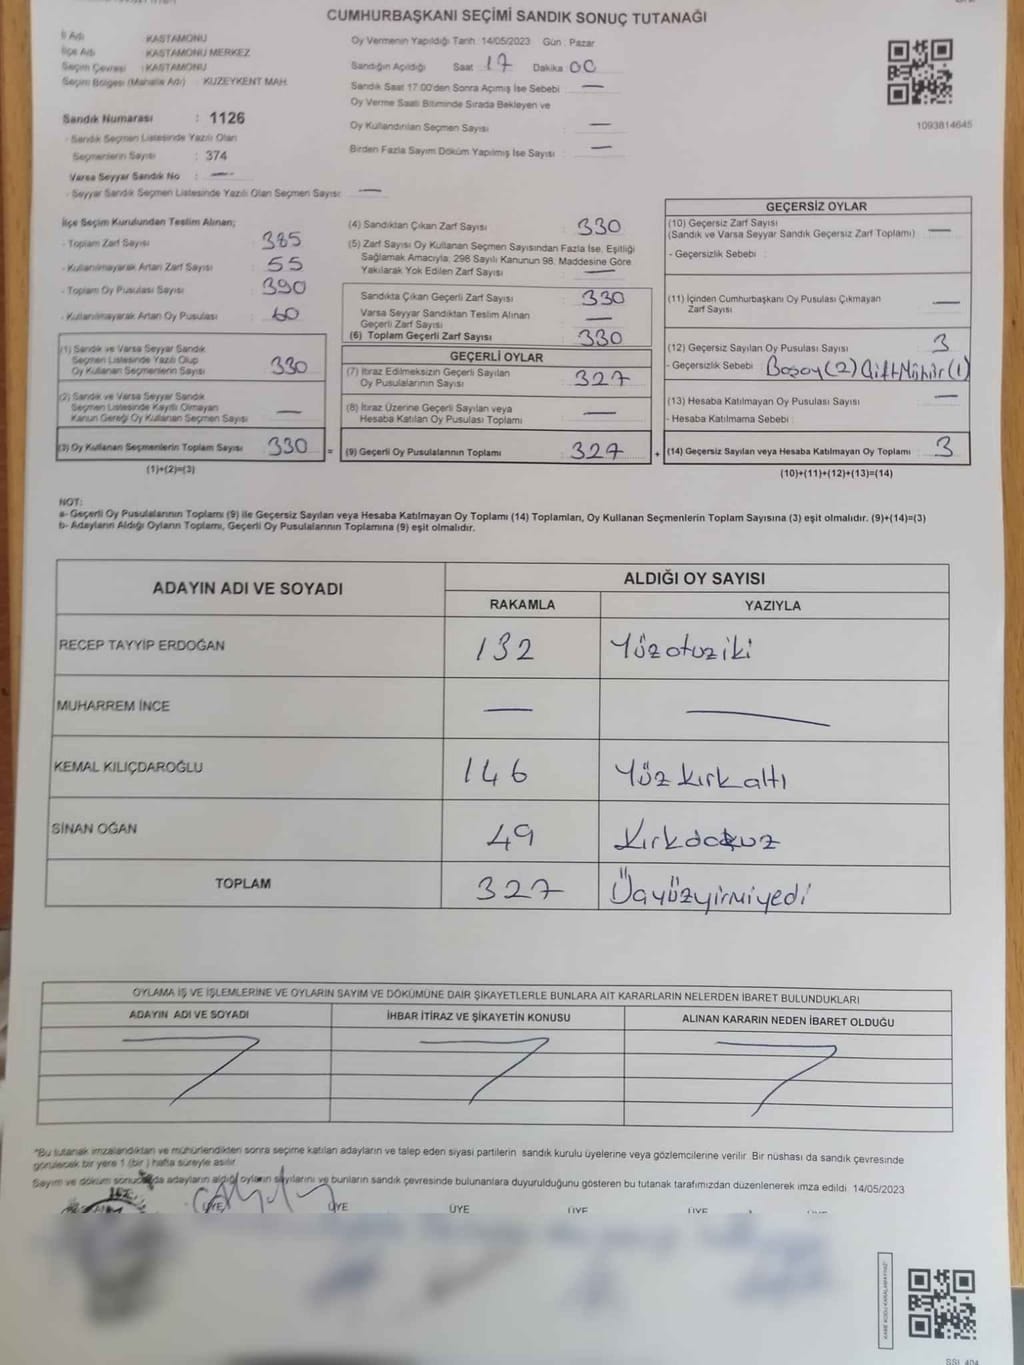 CUMHURBAŞKANI SEÇİMİ SANDIK SONUÇ TUTANAĞI
İl Adı KASTAMONU
İlçe Adı KASTAMONU MERKEZ
Seçim Çevresi : KASTAMONU
Seçim Bölgesi (Mahalle Adı) : KUZEYKENT MAH.
Sandık Numarası : 1126
- Sandık Seçmen Listesinde Yazılı Olan
Seçmenlerin Sayısı : 374
Varsa Seyyar Sandık No : —
- Seyyar Sandık Seçmen Listesinde Yazılı Olan Seçmen Sayısı: —
Oy Vermenin Yapıldığı Tarih: 14/05/2023 Gün : Pazar
Sandığın Açıldığı Saat 17 Dakika 00
Sandık Saat 17:00'den Sonra Açılmış İse Sebebi : —
Oy Verme Saati Bitiminde Sırada Bekleyen ve
Oy Kullandırılan Seçmen Sayısı : —
Birden Fazla Sayım Döküm Yapılmış İse Sayısı : —
1093814645
İlçe Seçim Kurulundan Teslim Alınan;
- Toplam Zarf Sayısı : 385
- Kullanılmayarak Artan Zarf Sayısı : 55
- Toplam Oy Pusulası Sayısı : 390
- Kullanılmayarak Artan Oy Pusulası : 60
(1) Sandık ve Varsa Seyyar Sandık
Seçmen Listesinde Yazılı Olup
Oy Kullanan Seçmenlerin Sayısı : 330
(2) Sandık ve Varsa Seyyar Sandık
Seçmen Listesinde Kayıtlı Olmayan
Kanun Gereği Oy Kullanan Seçmen Sayısı : —
(3) Oy Kullanan Seçmenlerin Toplam Sayısı : 330 =
(1)+(2)=(3)
(4) Sandıktan Çıkan Zarf Sayısı : 330
(5) Zarf Sayısı Oy Kullanan Seçmen Sayısından Fazla İse, Eşitliği
Sağlamak Amacıyla, 298 Sayılı Kanunun 98. Maddesine Göre
Yakılarak Yok Edilen Zarf Sayısı : —
Sandıkta Çıkan Geçerli Zarf Sayısı : 330
Varsa Seyyar Sandıktan Teslim Alınan
Geçerli Zarf Sayısı : —
(6) Toplam Geçerli Zarf Sayısı : 330
GEÇERLİ OYLAR
(7) İtiraz Edilmeksizin Geçerli Sayılan
Oy Pusulalarının Sayısı : 327
(8) İtiraz Üzerine Geçerli Sayılan veya
Hesaba Katılan Oy Pusulası Toplamı : —
(9) Geçerli Oy Pusulalarının Toplamı : 327 +
GEÇERSİZ OYLAR
(10) Geçersiz Zarf Sayısı
(Sandık ve Varsa Seyyar Sandık Geçersiz Zarf Toplamı) : —
- Geçersizlik Sebebi :
(11) İçinden Cumhurbaşkanı Oy Pusulası Çıkmayan
Zarf Sayısı : —
(12) Geçersiz Sayılan Oy Pusulası Sayısı : 3
- Geçersizlik Sebebi : Boşoy(2) Çift Mühür(1)
(13) Hesaba Katılmayan Oy Pusulası Sayısı : —
- Hesaba Katılmama Sebebi :
(14) Geçersiz Sayılan veya Hesaba Katılmayan Oy Toplamı : 3
(10)+(11)+(12)+(13)=(14)
NOT:
a- Geçerli Oy Pusulalarının Toplamı (9) ile Geçersiz Sayılan veya Hesaba Katılmayan Oy Toplamı (14) Toplamları, Oy Kullanan Seçmenlerin Toplam Sayısına (3) eşit olmalıdır. (9)+(14)=(3)
b- Adayların Aldığı Oyların Toplamı, Geçerli Oy Pusulalarının Toplamına (9) eşit olmalıdır.
ADAYIN ADI VE SOYADI ALDIĞI OY SAYISI
RAKAMLA YAZIYLA
RECEP TAYYİP ERDOĞAN 132 Yüzotuziki
MUHARREM İNCE — —
KEMAL KILIÇDAROĞLU 146 Yüzkırkaltı
SİNAN OĞAN 49 Kırkdokuz
TOPLAM 327 Üçyüzyirmiyedi
OYLAMA İŞ VE İŞLEMLERİNE VE OYLARIN SAYIM VE DÖKÜMÜNE DAİR ŞİKAYETLERLE BUNLARA AİT KARARLARIN NELERDEN İBARET BULUNDUKLARI
ADAYIN ADI VE SOYADI İHBAR İTİRAZ VE ŞİKAYETİN KONUSU ALINAN KARARIN NEDEN İBARET OLDUĞU
"Bu tutanak imzalandıktan ve mühürlendikten sonra seçime katılan adayların ve talep eden siyasi partilerin sandık kurulu üyelerine veya gözlemcilerine verilir. Bir nüshası da sandık çevresinde
görülecek bir yere 1 (bir ) hafta süreyle asılır.
Sayım ve döküm sonucunda adayların aldığı oyların sayılarını ve bunların sandık çevresinde bulunanlara duyurulduğunu gösteren bu tutanak tarafımızdan düzenlenerek imza edildi. 14/05/2023
ÜYE ÜYE ÜYE ÜYE ÜYE